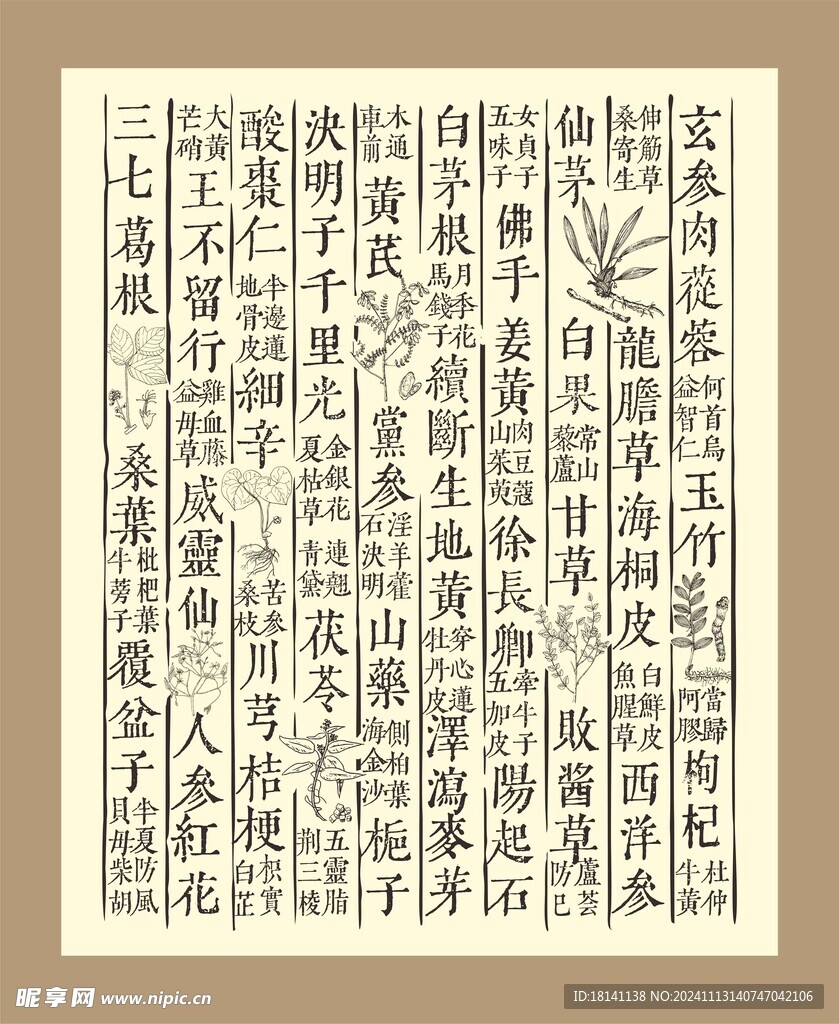 玄參肉蓯蓉何首烏益智仁玉竹當歸阿膠枸杞杜仲牛黃
伸筋草桑寄生龍膽草海桐皮白鮮皮魚腥草西洋參
仙茅白果常山藜蘆甘草敗酱草蘆薈防己
女貞子五味子佛手姜黃肉豆蔻山茱萸徐長卿牽牛子五加皮陽起石
白茅根月季花馬錢子續斷生地黃穿心蓮牡丹皮澤瀉麥芽
木通車前黃芪黨參淫羊藿石決明山藥側柏葉海金沙梔子
決明子千里光金銀花夏枯草連翹青黛茯苓五靈脂荆三棱
酸棗仁半邊蓮地骨皮細辛苦參桑枝川芎桔梗枳實白芷
大黃芒硝王不留行雞血藤益母草威靈仙人參紅花
三七葛根桑葉枇杷葉牛蒡子覆盆子半夏防風貝母柴胡
昵享网 www.nipic.cn
ID:18141138 NO:20241113140747042106